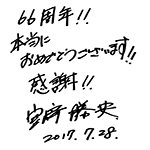 66周年!!
本当に
おめでとうございます!!
感謝!!
2017.7.28.